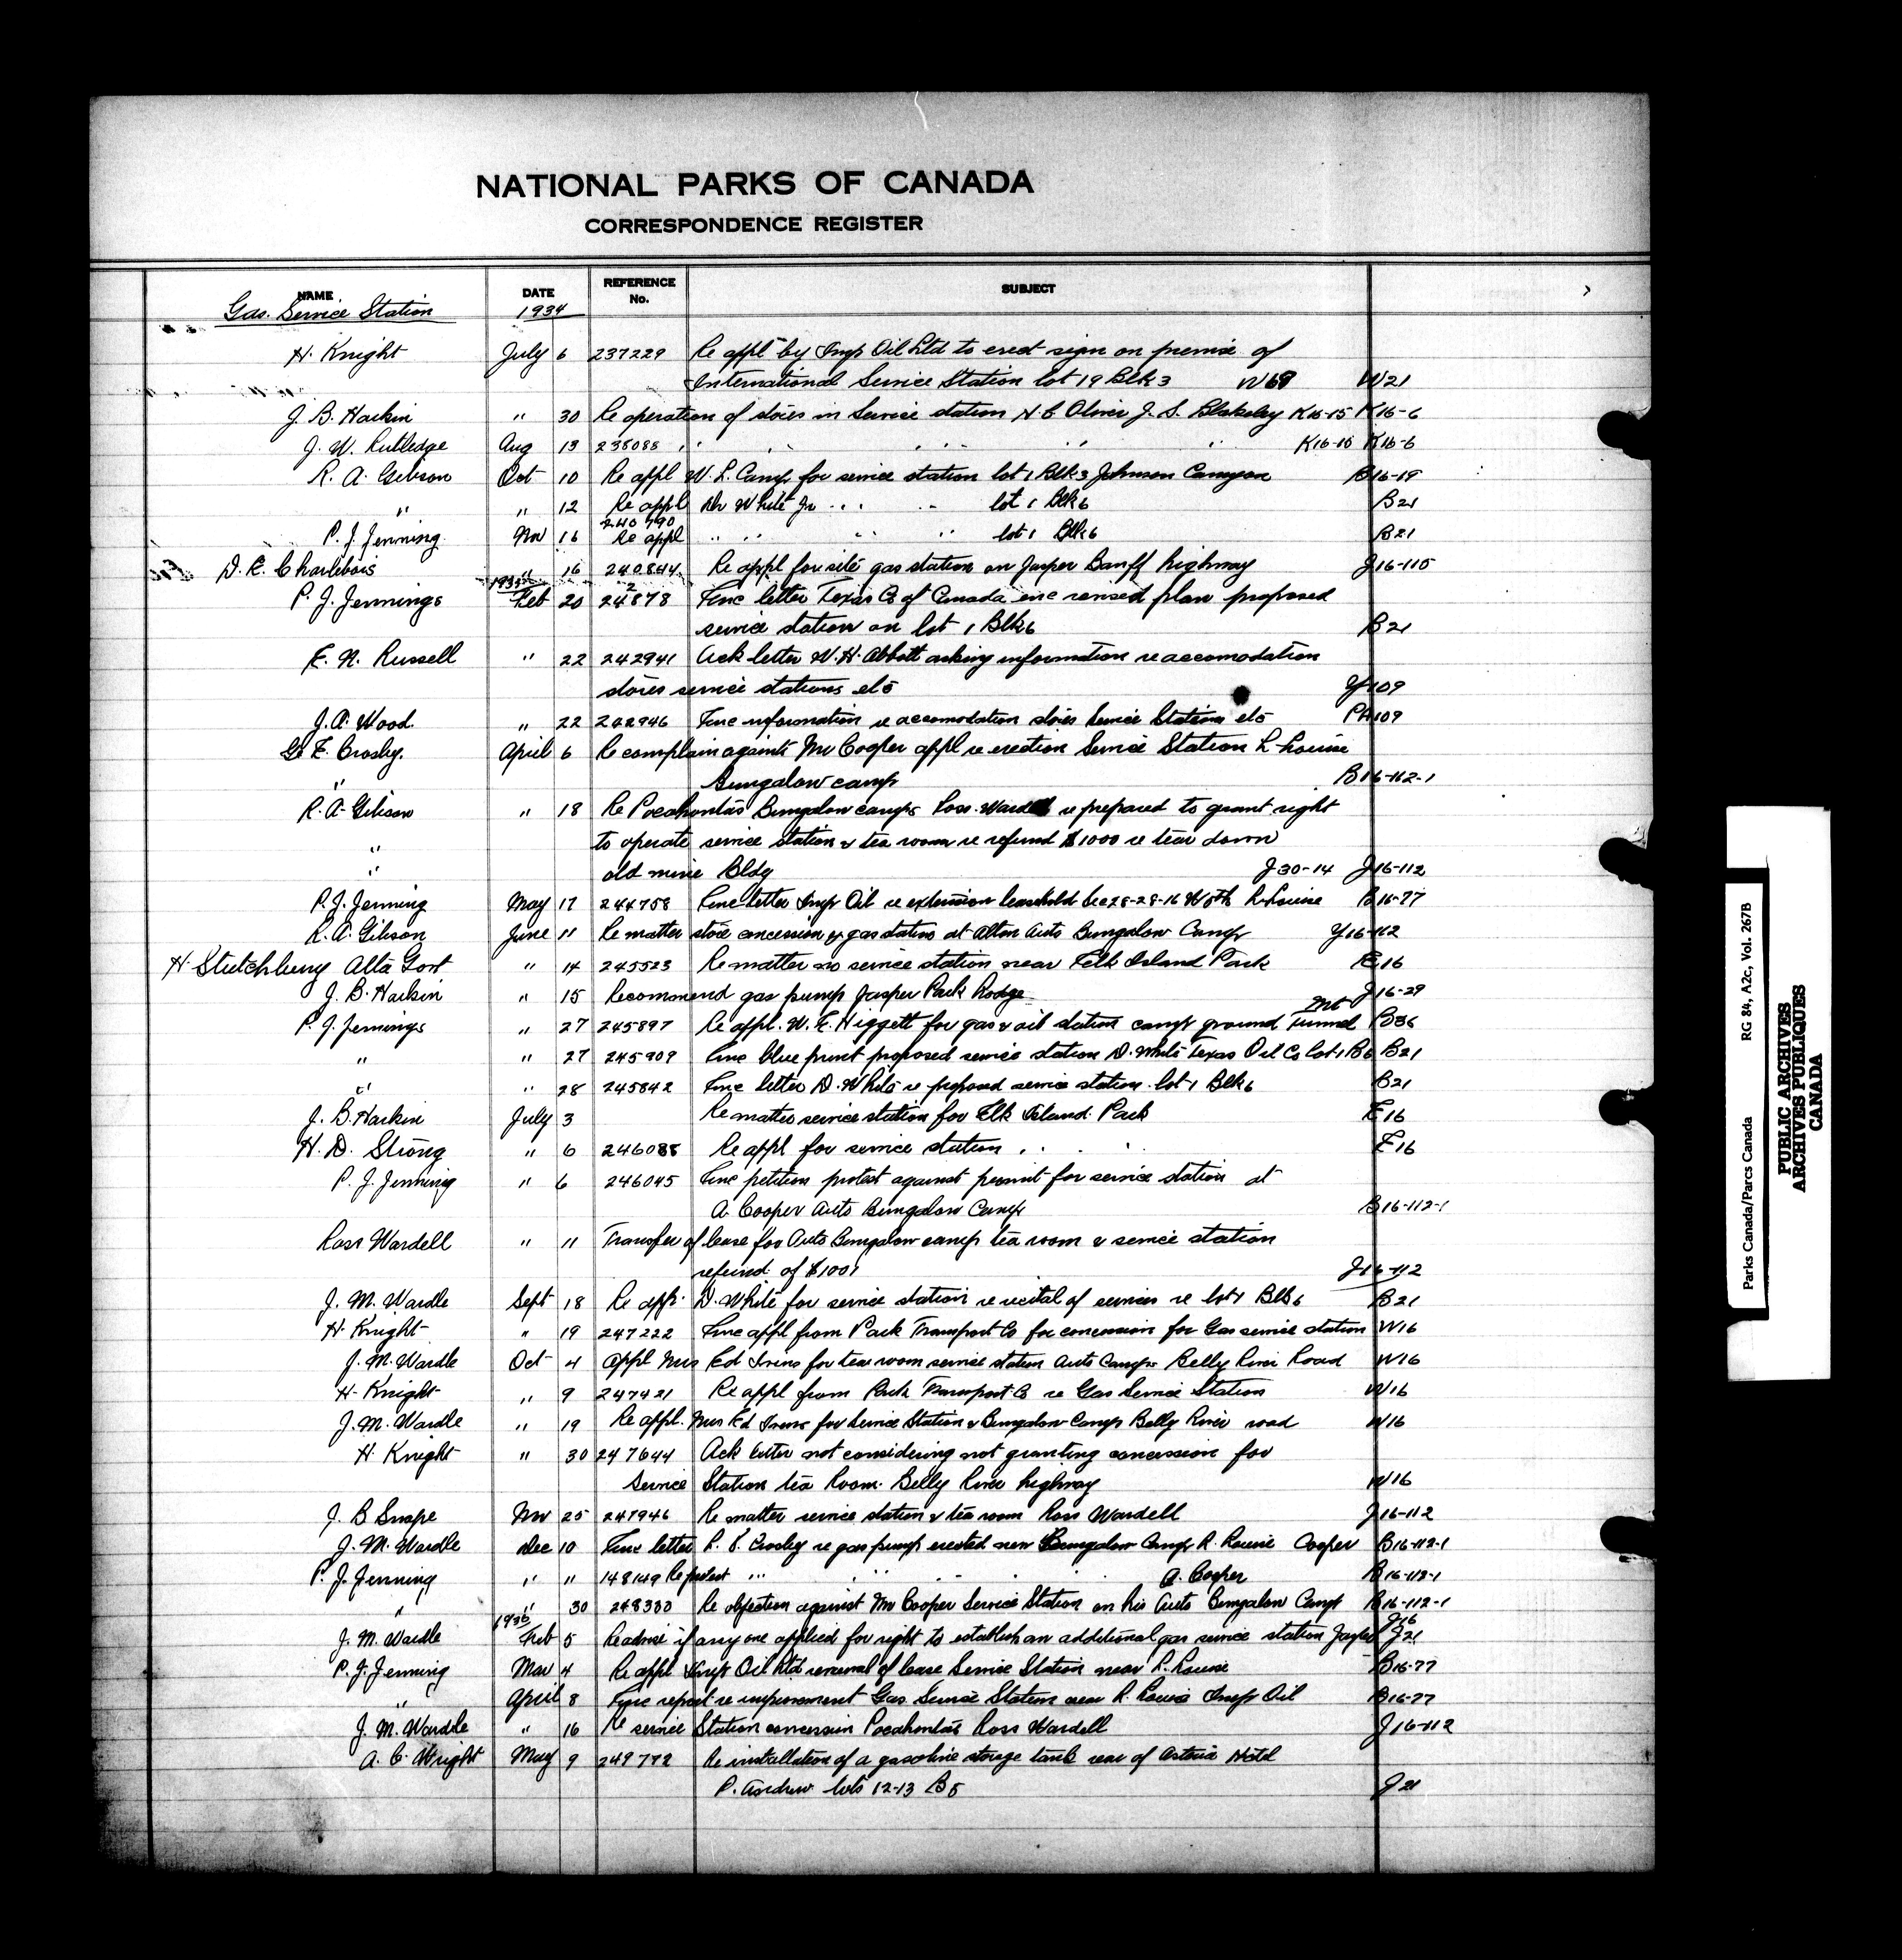 NATIONAL PARKS OF CANADA
CORRESPONDENCE REGISTER
NAME DATE REFERENCE No. SUBJECT
Gas. Service Station 1934
H. Knight July 6 237229 Re appl by Imp Oil Ltd to erect sign on premise of
International Service Station lot 19 Blk 3 W68 W21
J. B. Harkin " 30 Re operation of stores in Service station N. C Oliver J. S. Blakeley K16-15 K16-6
J. W. Rutledge Aug 13 238088 " " " " " K16-15 K16-6
R. A. Gibson Oct 10 Re appl W. L. Camp for service station lot 1 Blk 3 Johnson Canyon B16-19
" " 12 Re appl Dr White Jr " " lot 1 Blk 6 B21
P. J. Jenning Nov 16 240790 Re appl " " " " lot 1 Blk 6 B21
D. E. Charlebois " 16 240844 Re appl for site gas station on Jasper Banff highway J16-115
P. J. Jennings 1935 Feb 20 242878 Enc letter Texas Co of Canada inc revised plan proposed
service station on lot 1 Blk 6 B21
E. N. Russell " 22 242941 Ack letter W. H. Abbott asking information re accomodation
stores service stations etc Y109
J. A. Wood. " 22 242946 Enc information re accomodation stores Service Stations etc PA109
L. E. Crosby. April 6 Re complain againts Mr Cooper appl re erection Service Station L. Louise
" Bungalow camp B16-112-1
R. A. Gibson " 18 Re Pocahontas Bungalow camps Ross. Wardell re prepared to grant right
" to operate service station & tea room re refund $1000 re tear down
" old mine Bldg J30-14 J16-112
P. J. Jenning May 17 244758 Enc letter Imp Oil re extension leasehold Sec 28-28-16 W 5th L. Louise B16-77
R. A. Gibson June 11 Re matter store concession & gas stations at Alton Auto Bungalow Camp Y16-112
H. Stutchbury Alta Govt " 14 245523 Re matter no service station near Elk Island Park E16
J. B. Harkin " 15 Recommend gas pump Jasper Park Lodge J16-29
P. J. Jennings " 27 245897 Re appl. W. E. Higgett for gas & oil station camp ground Mt Tunnel B36
" " 27 245909 Enc blue print proposed service station D. White Texas Oil Co lot 1 B6 B21
" " 28 245842 Enc letter D. White re proposed service station lot 1 Blk 6 B21
J. B. Harkin July 3 Re matter service station for Elk Island Park E16
H. D. Strong " 6 246088 Re appl for service station " " E16
P. J. Jenning " 6 246045 Enc petition protest against permit for service station at
A. Cooper Auto Bungalow Camp B16-112-1
Ross Wardell " 11 Transfer of lease for Auto Bungalow camp tea room & service station
refund of $1001 J16-112
J. M. Wardle Sept 18 Re app. D. White for service station re recital of services re lot 1 Blk 6 B21
H. Knight " 19 247222 Enc appl from Park Transport Co for concession for Gas service station W16
J. M. Wardle Oct 4 Appl Mrs Ed Irvins for tea room service station Auto Camps Belly River Road W16
H. Knight " 9 247421 Re appl from Park Transport Co re Gas Service Station W16
J. M. Wardle " 19 Re appl. Mrs Ed for Service Station & Bungalow Camps Belly River road W16
H Knight " 30 247644 Ack letter not considering not granting concession for
Service Station tea Room. Belly River highway W16
J. B Snape Nov 25 247946 Re matter service station & tea room Ross Wardell J16-112
J. M. Wardle Dec 10 Enc letter L. E. Crosby re gas pump erected new Bungalow Camp L. Louise Cooper B16-112-1
P. J. Jenning " " 148149 Re protest " " " " A. Cooper B16-112-1
" " 30 248330 Re objection against Mr Cooper Service Station on his Auto Bungalow Camp B16-112-1
J. M. Wardle 1936 Feb 5 Re advise if any one applied for right to establish an additional gas service station Jasper J16 J21
P. J. Jenning Mar 4 Re appl Imp Oil Ltd renewal of lease Service Station near L. Louise B16-77
" April 8 Enc report re improvement Gas Service Station near L. Louise Imp Oil B16-77
J. M. Wardle " 16 Re service Station concession Pocahontas Ross Wardell J16-112
A. C. Wright May 9 249772 Re installation of a gasoline storage tank rear of Astoria Hotel
P. Andrew lots 12-13 B5 J21
Parks Canada/Parcs Canada RG 84, A2c, Vol. 267B
PUBLIC ARCHIVES
ARCHIVES PUBLIQUES
CANADA